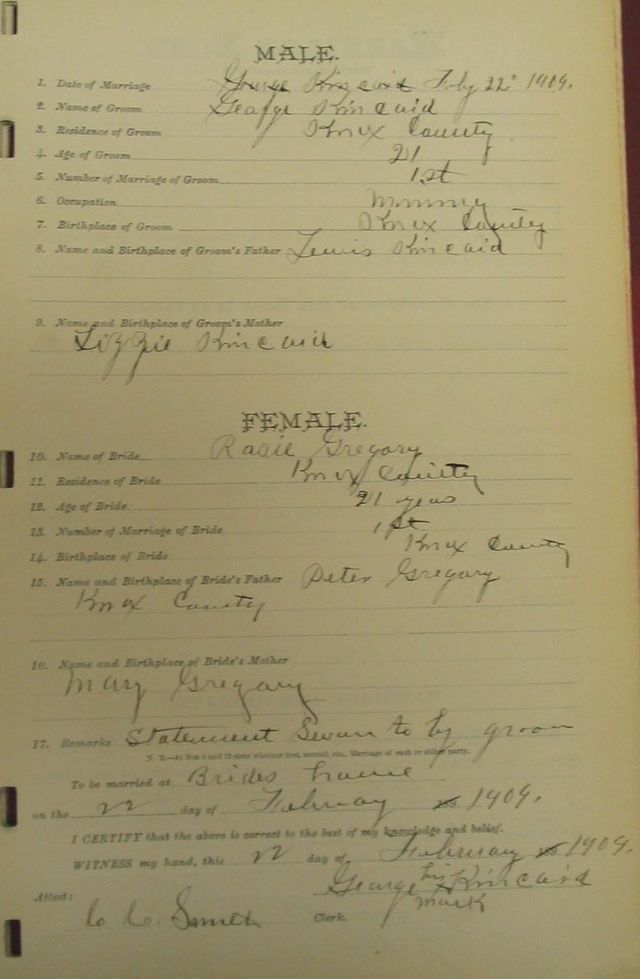 MALE.
1. Date of Marriage George Kincaid Feby 22" 1909.
2. Name of Groom George Kincaid
3. Residence of Groom Knox County
4. Age of Groom 21
5. Number of Marriage of Groom 1st
6. Occupation
7. Birthplace of Groom Knox County
8. Name and Birthplace of Groom's Father Lewis Kincaid
9. Name and Birthplace of Groom's Mother
Lizzie Kincaid
FEMALE.
10. Name of Bride Rasie Gregory
11. Residence of Bride Knox County
12. Age of Bride 21 years
13. Number of Marriage of Bride 1st
14. Birthplace of Bride Knox County
15. Name and Birthplace of Bride's Father Peter Gregory
Knox County
16. Name and Birthplace of Bride's Mother
Mary Gregory
17. Remarks Statement Sworn to by groom
N. B.—At Nos 5 and 13 state whether first, second, etc., Marriage of each or either party.
To be married at Brides home
on the 22 day of February 1909.
I CERTIFY that the above is correct to the best of my knowledge and belief.
WITNESS my hand, this 22 day of February 1909.
George his Kincaid
mark
Attest:
C. C. Smith Clerk.